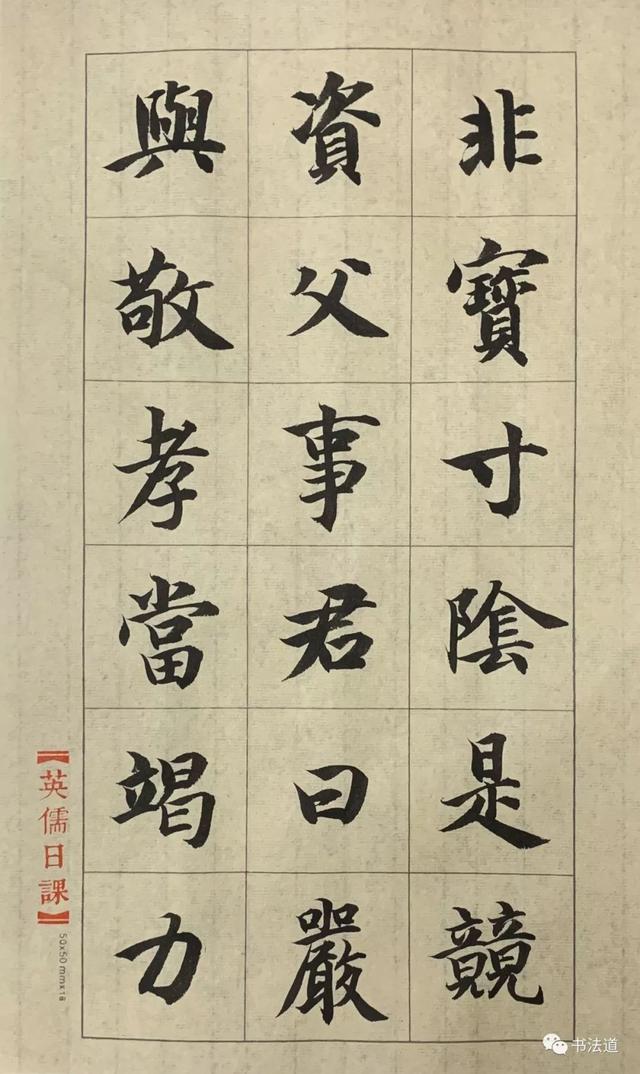 非寶寸陰是競
資父事君曰嚴
與敬孝當竭力
【英儒日課】
50x50mmx18
书法道